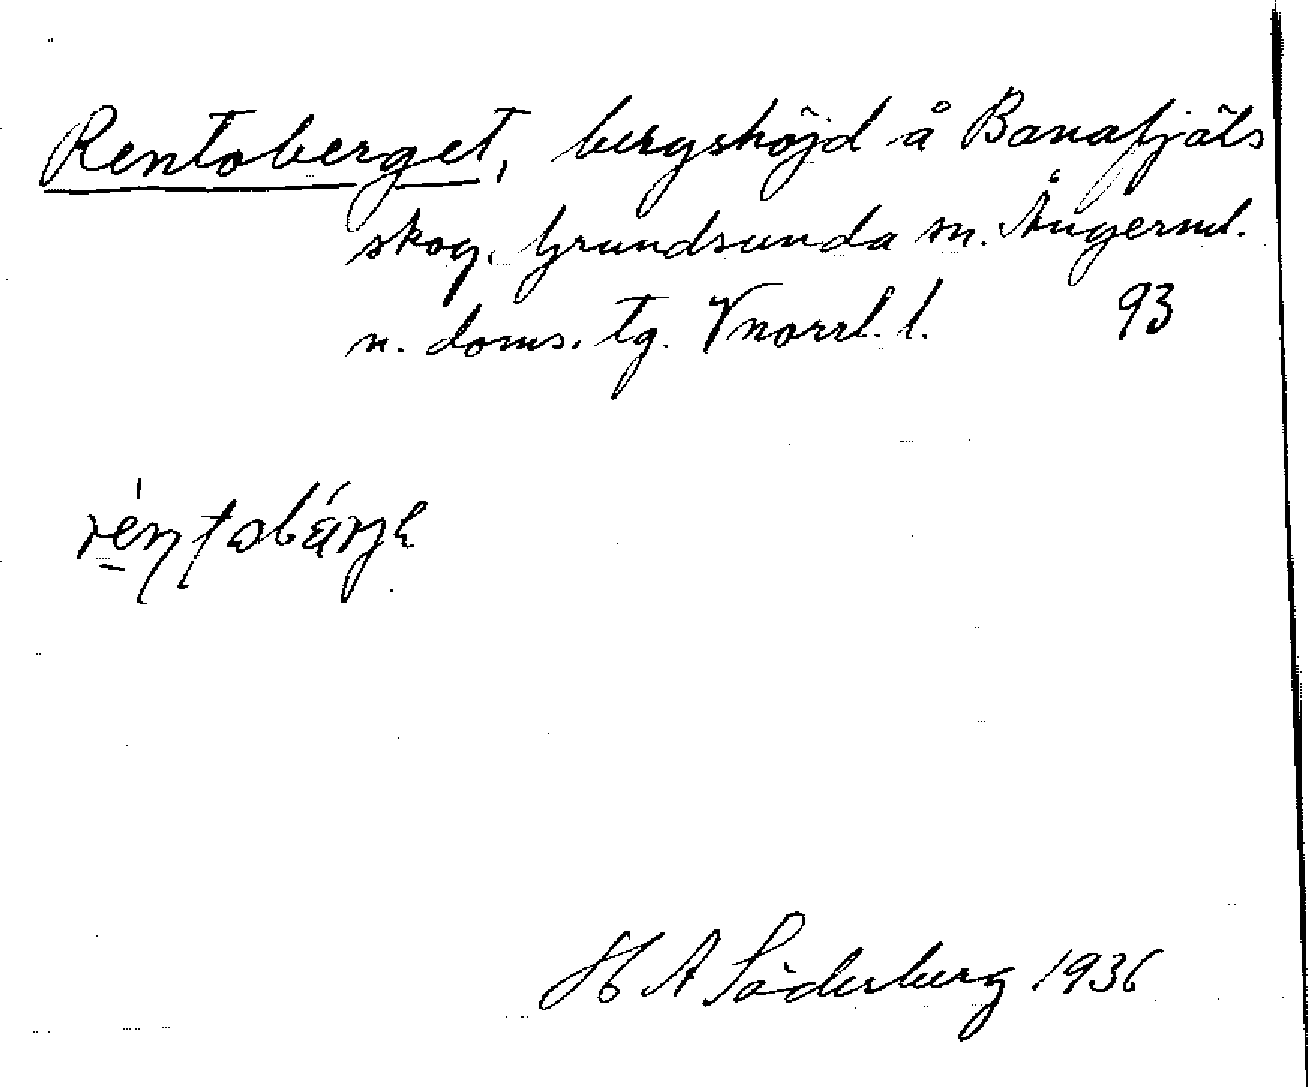 Rentoberget, bergshöjd å Banafjäls
skog. Grundsunda sn. Ångerml.
n. doms. tg. Vnorrl. l. 93
H A Söderberg 1936